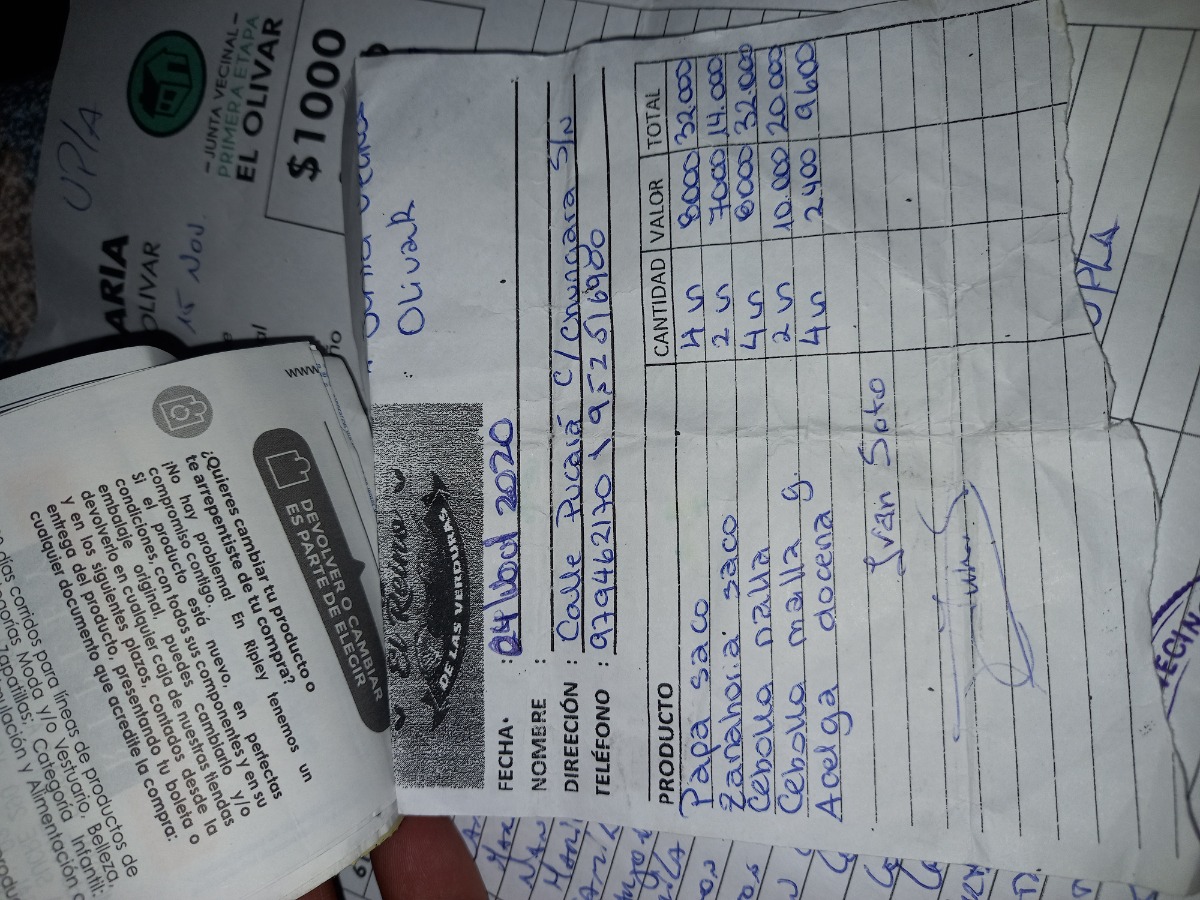 UP/A
-JUNTA VECINAL-
PRIMERA ETAPA
EL OLIVAR
$1000
ARIA
OLIVAR
15 NOV.
Olivar
El Reino
DE LAS VERDURAS
FECHA :
2020
NOMBRE :
DIREECIÓN : Calle Pucará c/Chungara S/N
TELÉFONO : 979462170 \ 952516980
PRODUCTO CANTIDAD VALOR TOTAL
Papa saco 4 8000 32.000
Zanahoria saco 2 7000 14.000
Cebolla malla 4 8000 32.000
Cebolla malla g. 2 10.000 20.000
Acelga docena 4 2400 9600
Ivan Soto
UPLA
VECIN
www.
DEVOLVER O CAMBIAR
ES PARTE DE ELEGIR
¿Quieres cambiar tu producto o
te arrepentiste de tu compra?
¡No hay problema! En Ripley tenemos un
compromiso contigo.
Si el producto está nuevo, en perfectas
condiciones, con todos sus componentes y en su
embalaje original, puedes cambiarlo y/o
devolverlo en cualquier caja de nuestras tiendas
y en los siguientes plazos, contados desde la
entrega del producto, presentando tu boleta o
cualquier documento que acredite la compra:
días corridos para líneas de productos de
Moda y/o Vestuario, Belleza,
zapatillas; Categoría Infantil:
y Alimentación